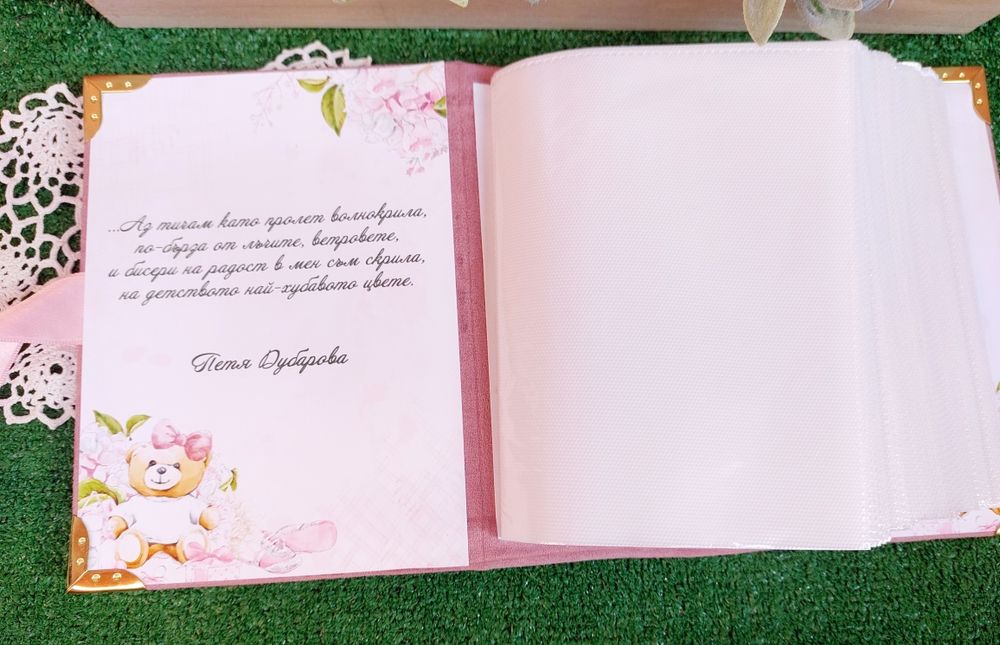 ...Аз тичам като пролет волнокрила,
по-бърза от лъчите, ветровете,
и бисери на радост в мен съм скрила,
на детството най-хубавото цвете.
Петя Дубарова